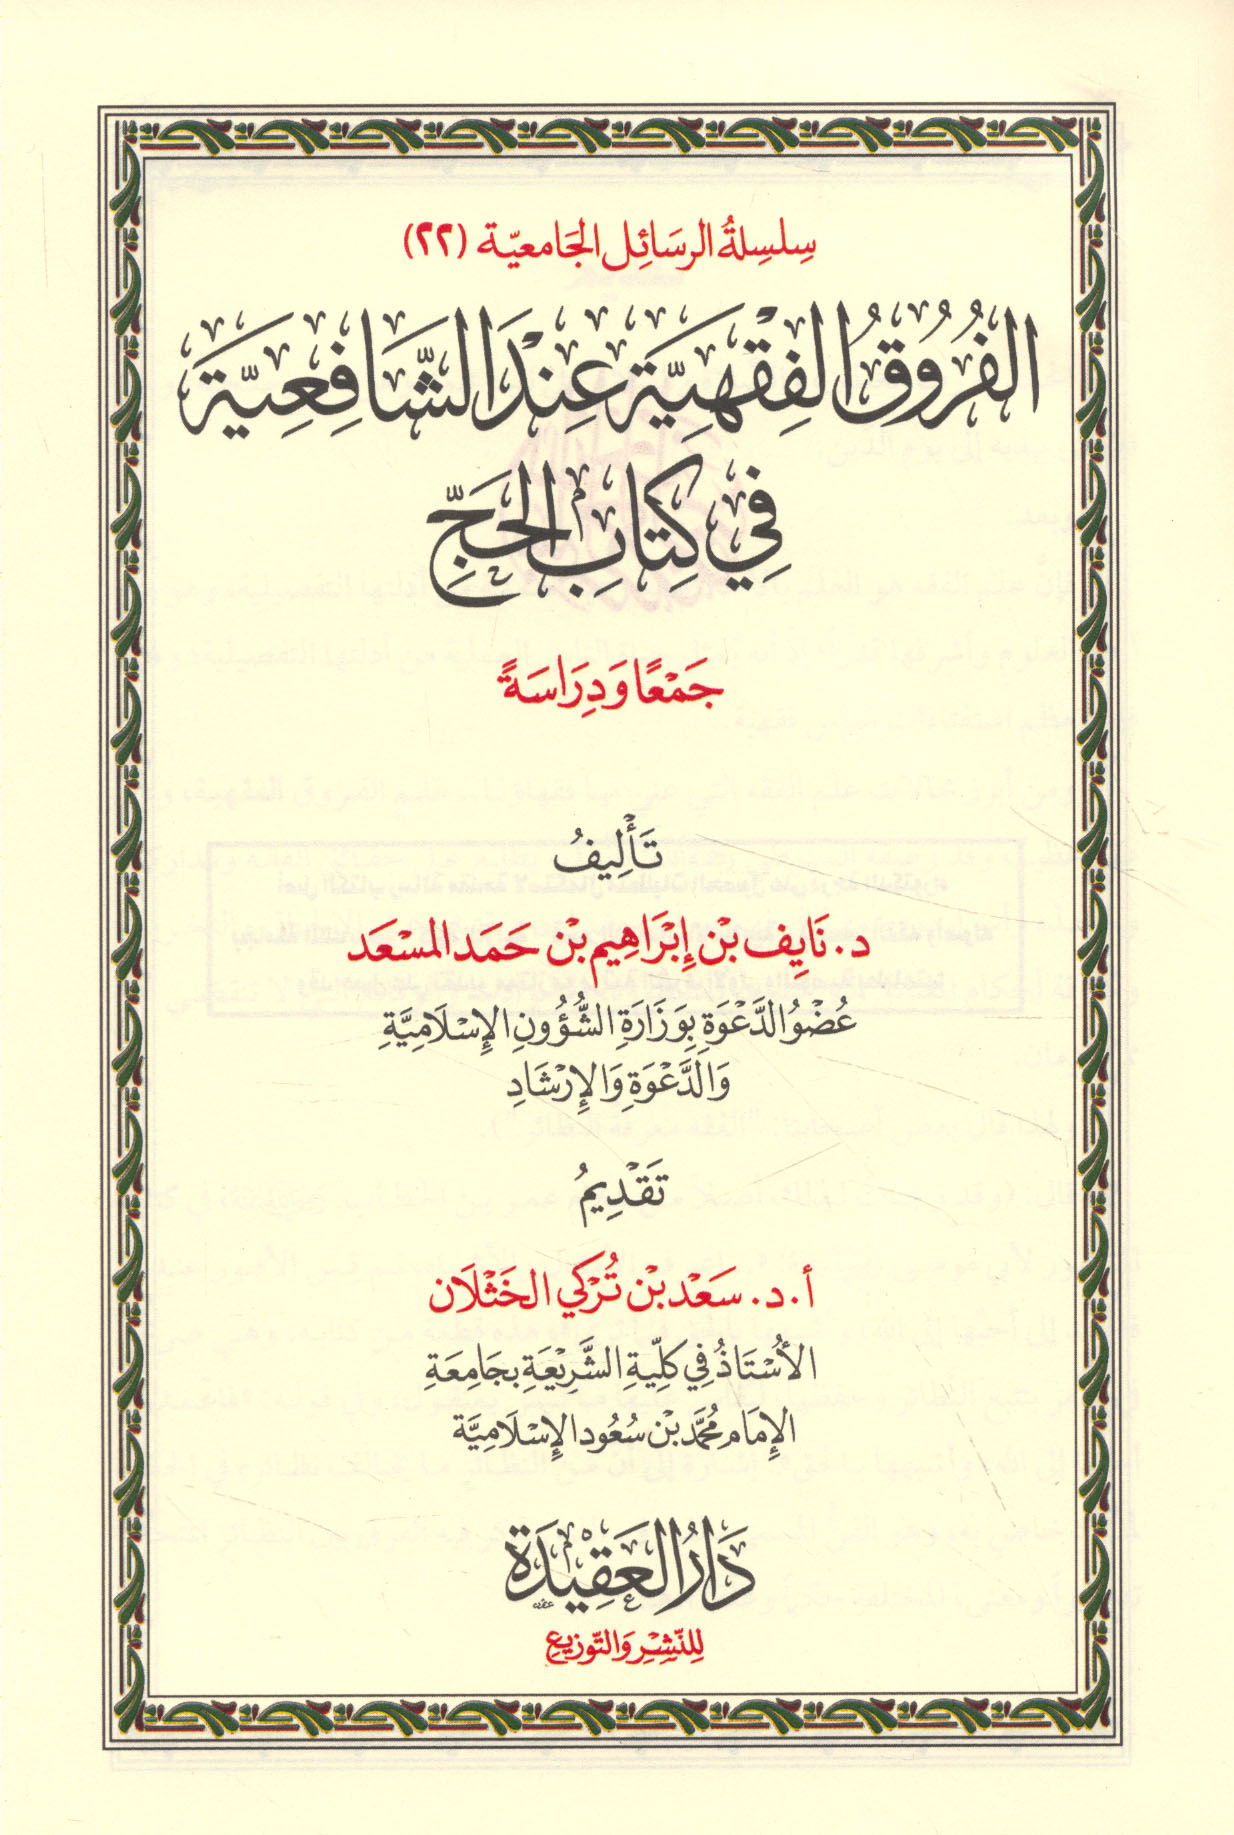 سِلسِلةُ الرسَائِل الجَامعيّة (٢٢)
الفُرُوقُ الفِقْهِيَّة عِنْدَ الشَّافِعِيَّة
فِي كِتَابِ الحَجِّ
جَمْعًا وَدِرَاسَةً
تَأْلِيفُ
د. نَايِف بْن إِبْرَاهِيم بْن حَمَد المَسْعَد
عُضْوُ الدَّعْوَةِ بِوَزَارَةِ الشُّؤُونِ الإِسْلَامِيَّةِ
وَالدَّعْوَةِ وَالإِرْشَادِ
تَقْدِيمُ
أ. د. سَعَد بْن تُرْكي الخَثْلَان
الأُسْتَاذُ فِي كلِّيةِ الشَّرِيْعَةِ بجَامِعَةِ
الإِمَام مُحَمَّد بْن سُعُود الإِسْلَامِيَّة
دَارُ العَقِيْدَة
لِلنّشْرِ وَالتّوزيع